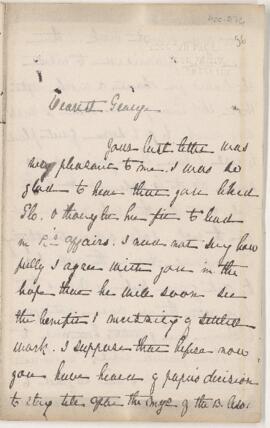 56
Dearest George
Your last letter was
very pleasant to me. I was so
glad to hear that you liked
& thought her fit to lead
in affairs. I need not say how
fully I agree with you in the
hope that he will soon see
the benefit & necessity of settled
work. I suppose that before now
you have heard of papa's decision
to stay till after the of the B. Asso.